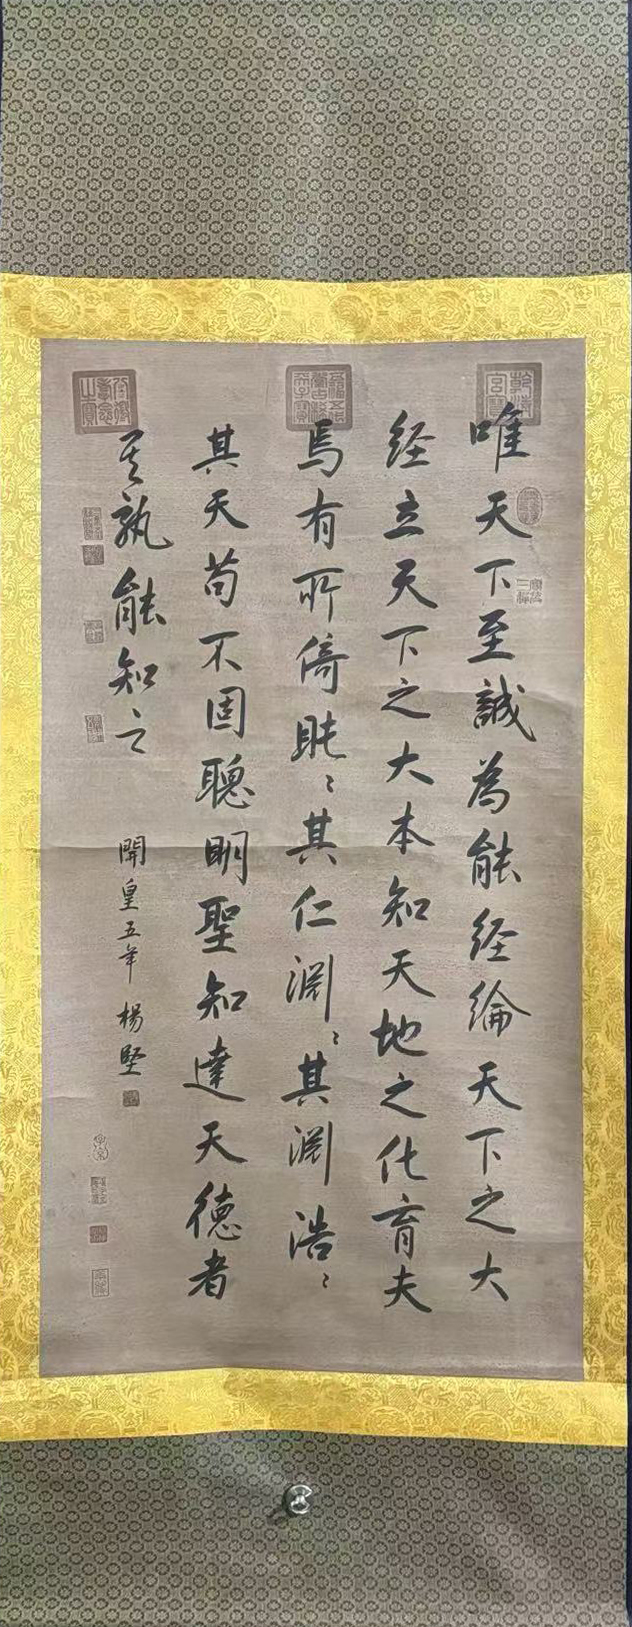 唯天下至誠為能经綸天下之大
经立天下之大本知天地之化育夫
焉有所倚肫〻其仁淵〻其淵浩〻
其天苟不固聰明聖知達天德者
其孰能知之
開皇五年 楊堅